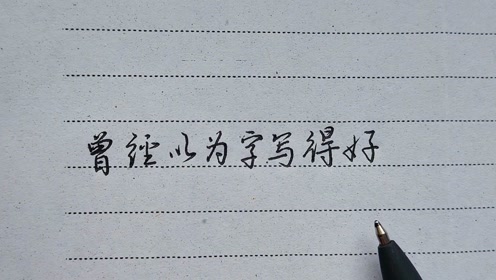 曾經以为字写得好